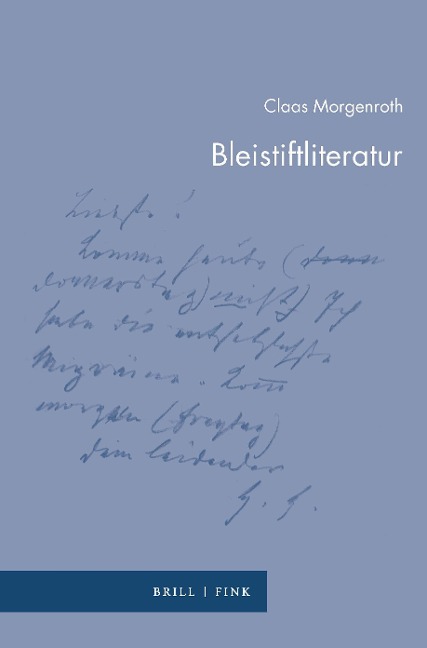 Claas Morgenroth
Bleistiftliteratur
Liebste!
Komme heute (
donnerstag) nicht! Ich
habe die entsetzlichste
Migräne. Komm
morgen (freytag)
dein leidender
BRILL | FINK